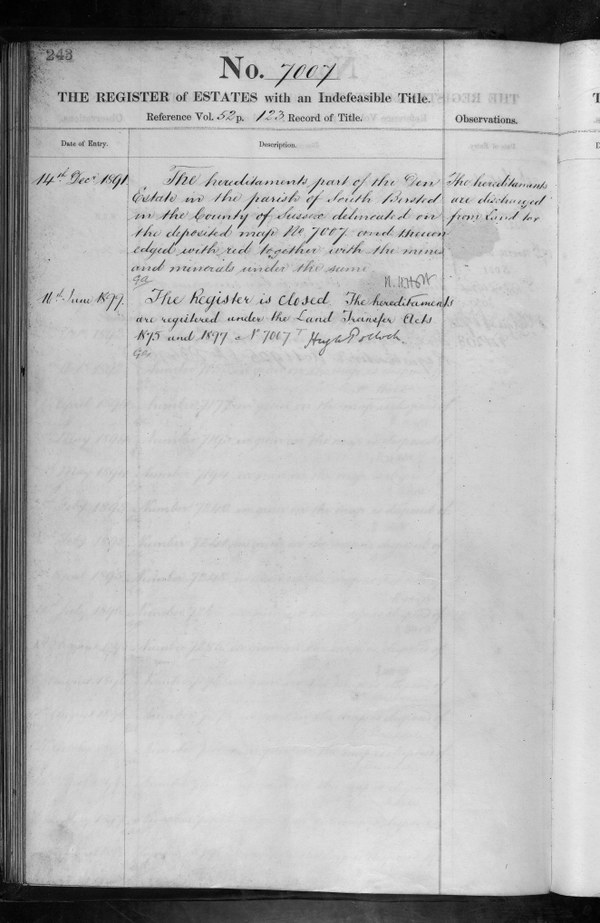 243
No. 7007
THE REGISTER of ESTATES with an Indefeasible Title.
Reference Vol. 52 p. 123 Record of Title.
Observations.
Date of Entry.
Description.
14th Decr 1891
The hereditaments part of the Den
Estate in the parish of South Bersted
in the County of Sussex delineated on
the deposited map No. 7007 and thereon
edged with red together with the mines
and minerals under the same
The hereditaments
are discharged
from Land tax
June 1899.
The Register is closed The hereditaments
are registered under the Land Transfer Acts
1875 and 1897 No 7007
Hugh Pollock.